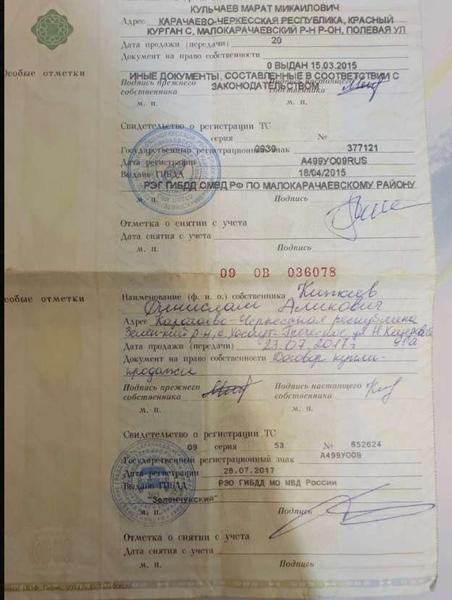 КУЛЬЧАЕВ МАРАТ МИКАИЛОВИЧ
Адрес КАРАЧАЕВО-ЧЕРКЕССКАЯ РЕСПУБЛИКА, КРАСНЫЙ
КУРГАН С, МАЛОКАРАЧАЕВСКИЙ Р-Н Р-ОН, ПОЛЕВАЯ УЛ
Дата продажи (передачи) 20
Документ на право собственности
0 ВЫДАН 15.03.2015
Особые отметки
ИНЫЕ ДОКУМЕНТЫ, СОСТАВЛЕННЫЕ В СООТВЕТСТВИИ С
Подпись прежнего Подпись настоящего
собственника ЗАКОНОДАТЕЛЬСТВОМ собственника
М. П. М. П.
Свидетельство о регистрации ТС
серия №
Государственный регистрационный знак 0939 377121
Дата регистрации А499УО09RUS
Выдано ГИБДД 18/04/2015
РЭГ ГИБДД ОМВД РФ ПО МАЛОКАРАЧАЕВСКОМУ РАЙОНУ
М. П. Подпись
Отметка о снятии с учета
Дата снятия с учета
М. П. Подпись
09 ОВ 036078
Особые отметки
Наименование (ф. и. о.) собственника
Адрес Карачаево-Черкесская республика
Дата продажи (передачи) 23.07.2017г
Документ на право собственности Договор купли-
продажи
Подпись прежнего Подпись настоящего
собственника собственника
М. П. М. П.
Свидетельство о регистрации ТС
09 серия 53 № 852624
Государственный регистрационный знак А499УО09
Дата регистрации 28.07.2017
Выдано ГИБДД РЭО ГИБДД МО МВД России
"Зеленчукский"
М. П. Подпись
Отметка о снятии с учета
Дата снятия с учета
М. П. Подпись